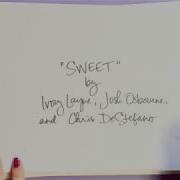 "SWEET"
by
Ivory Layne, Josh Osbourne,
and Chris DeStefano